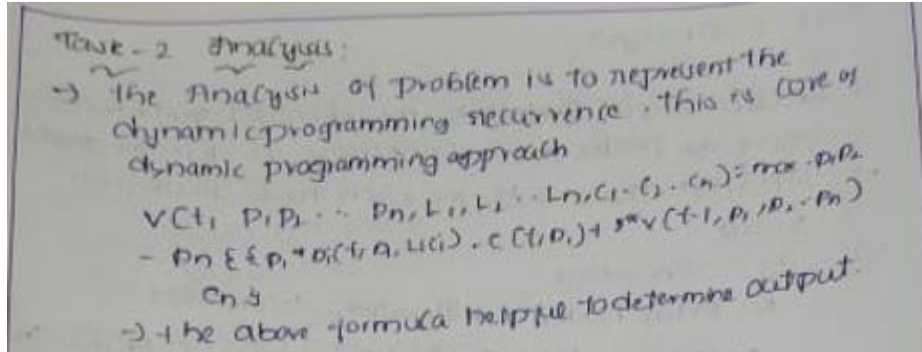 Task - 2 Analysis:
→ The Analysis of problem is to represent the
dynamic programming recurrence. this is core of
dynamic programming approach
V(t, P1P2 ... Pn, L1, L2 .. Ln, C1. C2. Cn) = max . P1P2
- Pn { { Pi * Di(t, Pi, Li Ci) - C(t, Di) + V(t-1, P1, P2 .. Pn)
Cn }
→ The above formula helpful to determine output.